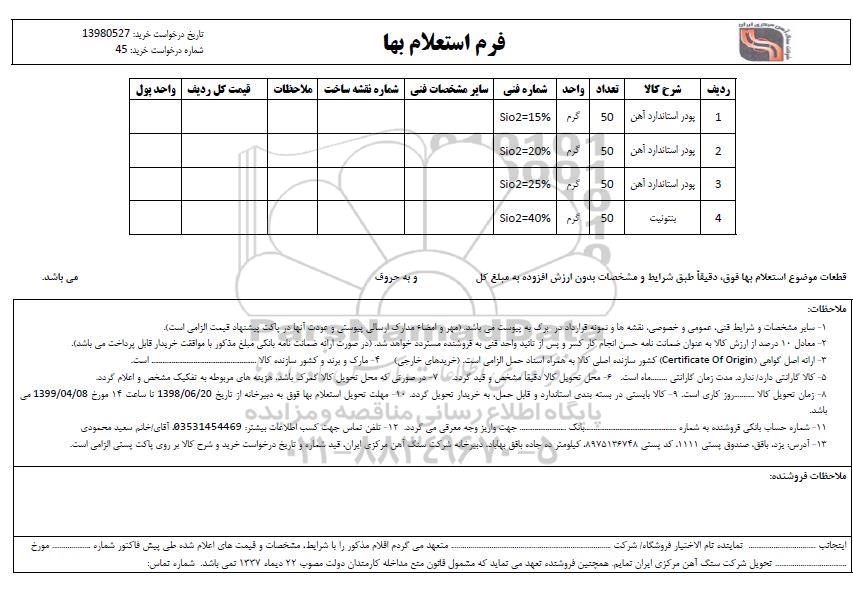 تاریخ درخواست خرید: 13980527
فرم استعلام بها
شماره درخواست خرید: 45
شرکت سنگ آهن مرکزی ایران
ردیف شرح کالا تعداد واحد شماره فنی سایر مشخصات فنی شماره نقشه ساخت ملاحظات قیمت کل ردیف واحد پول
1 پودر استاندارد آهن 50 گرم Sio2=15%
2 پودر استاندارد آهن 50 گرم Sio2=20%
3 پودر استاندارد آهن 50 گرم Sio2=25%
4 بنتونیت 50 گرم Sio2=40%
قطعات موضوع استعلام بها فوق، دقیقاً طبق شرایط و مشخصات بدون ارزش افزوده به مبلغ کل و به حروف می باشد.
ملاحظات:
۱- سایر مشخصات و شرایط فنی، عمومی و خصوصی، نقشه ها و نمونه قرارداد در برگ به پیوست می باشد. (مهر و امضاء مدارک ارسالی پیوستی و عودت آنها در پاکت پیشنهاد قیمت الزامی است).
۲- معادل ۱۰ درصد از ارزش کالا به عنوان ضمانت نامه حسن انجام کار کسر و پس از تائید واحد فنی به فروشنده مسترد خواهد شد. (در صورت ارائه ضمانت نامه بانکی مبلغ مذکور با موافقت خریدار قابل پرداخت می باشد).
۳- ارائه اصل گواهی (Certificate Of Origin) کشور سازنده اصلی کالا به همراه اسناد حمل الزامی است. (خریدهای خارجی) ۴- مارک و برند و کشور سازنده کالا ........ است.
۵- کالا گارانتی دارد/ ندارد. مدت زمان گارانتی ........ماه است. ۶- محل تحویل کالا دقیقاً مشخص و قید گردد. ۷- در صورتی که محل تحویل کالا گمرک باشد، هزینه های مربوطه به تفکیک مشخص و اعلام گردد.
۸- زمان تحویل کالا ........روز کاری است. ۹- کالا بایستی در بسته بندی استاندارد و قابل حمل، به خریدار تحویل گردد. ۱۰- مهلت تحویل استعلام بها فوق به دبیرخانه از تاریخ 1398/06/20 تا ساعت ۱۴ مورخ 1399/04/08 می
باشد.
۱۱- شماره حساب بانکی فروشنده به شماره ........بانک ........ جهت واریز وجه معرفی می گردد. ۱۲- تلفن تماس جهت کسب اطلاعات بیشتر: 03531454469، آقای/خانم سعید محمودی
۱۳- آدرس: یزد، بافق، صندوق پستی ۱۱۱۱، کد پستی ۸۹۷۵۱۳۶۷۴۸، کیلومتر ده جاده بافق بهاباد، دبیرخانه شرکت سنگ آهن مرکزی ایران، قید شماره و تاریخ درخواست خرید و شرح کالا بر روی پاکت پستی الزامی است.
ملاحظات فروشنده:
اینجانب ........ نماینده تام الاختیار فروشگاه/ شرکت ........ متعهد می گردم اقلام مذکور را با شرایط، مشخصات و قیمت های اعلام شده طی پیش فاکتور شماره ........ مورخ
........ تحویل شرکت سنگ آهن مرکزی ایران نمایم. همچنین فروشنده تعهد می نماید که مشمول قانون منع مداخله کارمندان دولت مصوب ۲۲ دیماه ۱۳۳۷ نمی باشد. شماره تماس:
ParsNamadData
پایگاه اطلاع رسانی مناقصه و مزایده
۰۲۱-۸۸۳۴۹۶۷۰-۵